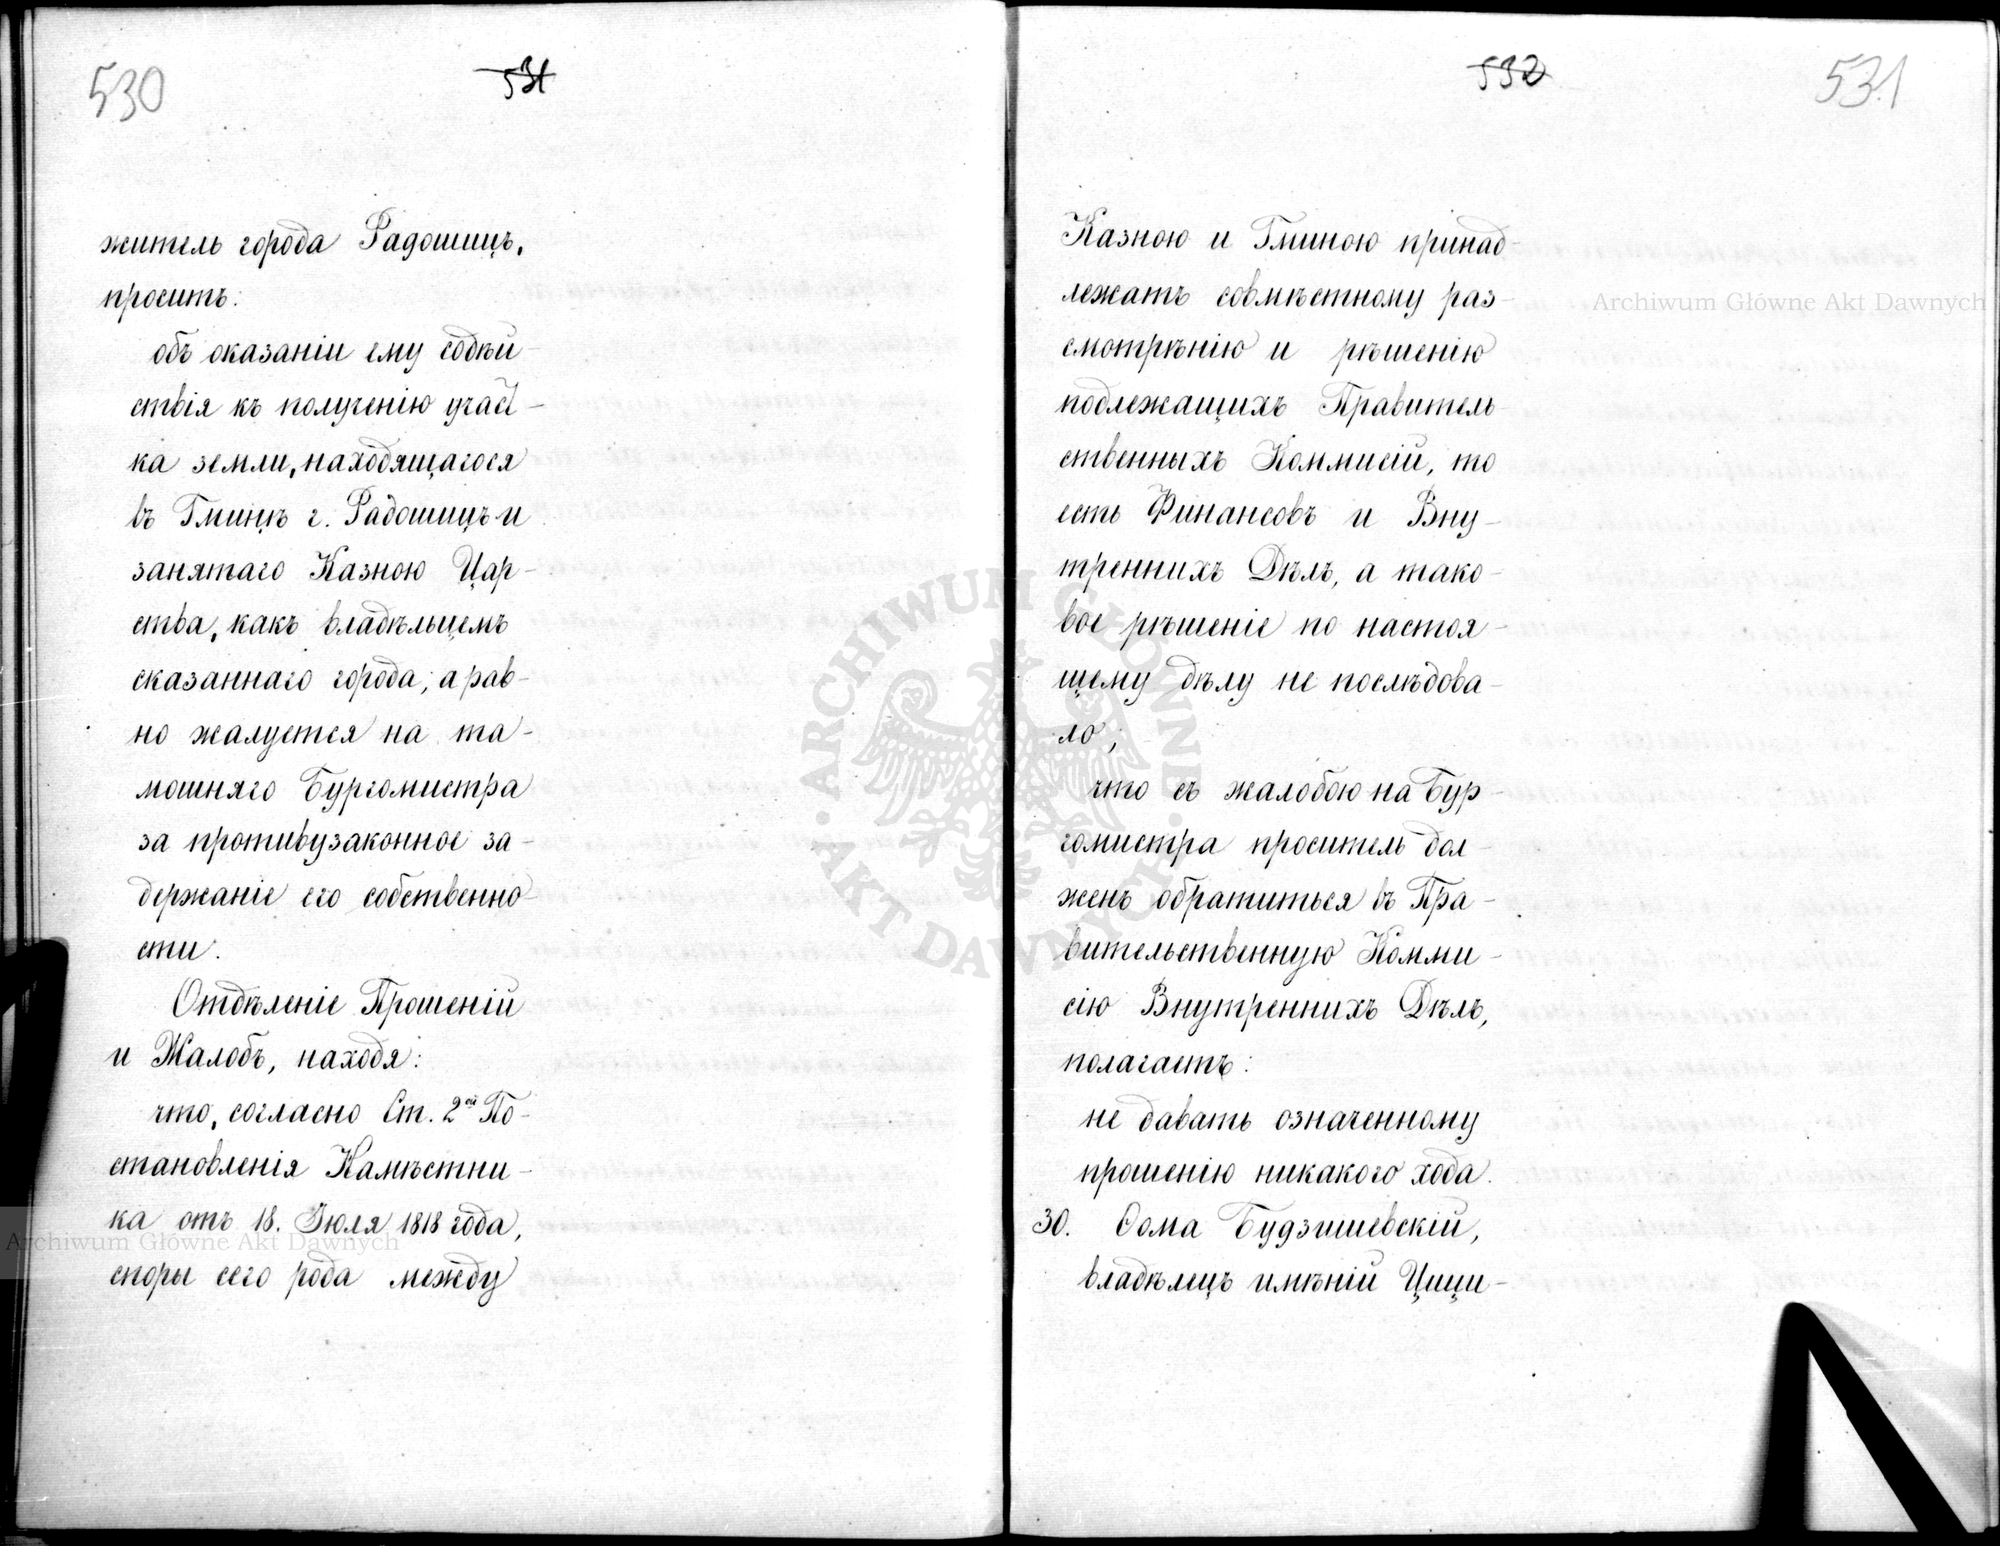 530
531
житель города Радошицъ,
проситъ:
объ оказаніи ему содѣй-
ствія къ полученію участ-
ка земли, находящагося
въ Гминѣ г. Радошицъ и
занятаго Казною Цар-
ства, какъ владѣльцемъ
сказаннаго города; а рав-
но жалуется на та-
мошняго Бургомистра
за противузаконное за-
держаніе его собственно-
сти.
Отдѣленіе Прошеній
и Жалобъ, находя:
что, согласно Ст. 2ой По-
становленія Намѣстни-
ка отъ 18. Іюля 1818 года,
споры сего рода между
532
531
Казною и Гминою принад-
лежатъ совмѣстному раз-
смотрѣнію и рѣшенію
подлежащихъ Правитель-
ственныхъ Коммисій, то
есть Финансовъ и Вну-
треннихъ Дѣлъ, а тако-
вое рѣшеніе по настоя-
щему дѣлу не послѣдова-
ло;
что съ жалобою на Бур-
гомистра проситель дол-
женъ обратиться въ Пра-
вительственную Комми-
сію Внутреннихъ Дѣлъ,
полагаетъ:
не давать означенному
прошенію никакого хода.
30. Ѳома Будзишевскій,
владѣлецъ имѣній Цици-
Archiwum Główne Akt Dawnych
Archiwum Główne Akt Dawnych
ARCHIWUM GŁÓWNE
AKT DAWNYCH